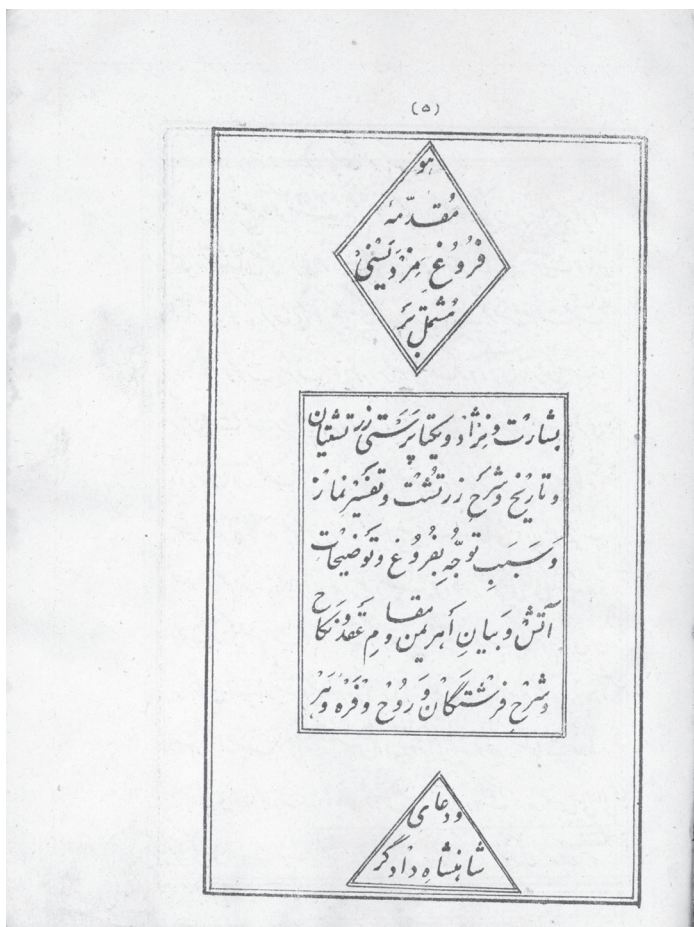 (۵)
هو
مُقدّمهٔ
فُرُوغِ مَزدَیَسنی
مُشتملّ بَر
بشارَت و نِژاد و یکتا پَرَستی زرتشتیان
و تاریخ و شرحِ زرتُشت و تفسیرِ نماز
وَ سَبَبِ توجّه بِفُروغ و توضیحات
آتش و بیانِ أهریمن و مقامِ عقد و نکاح
و شرحِ فرشتگان وَ رُوح و فَرَه وَهَر
و دعایِ
شاهنشاهِ دادگر